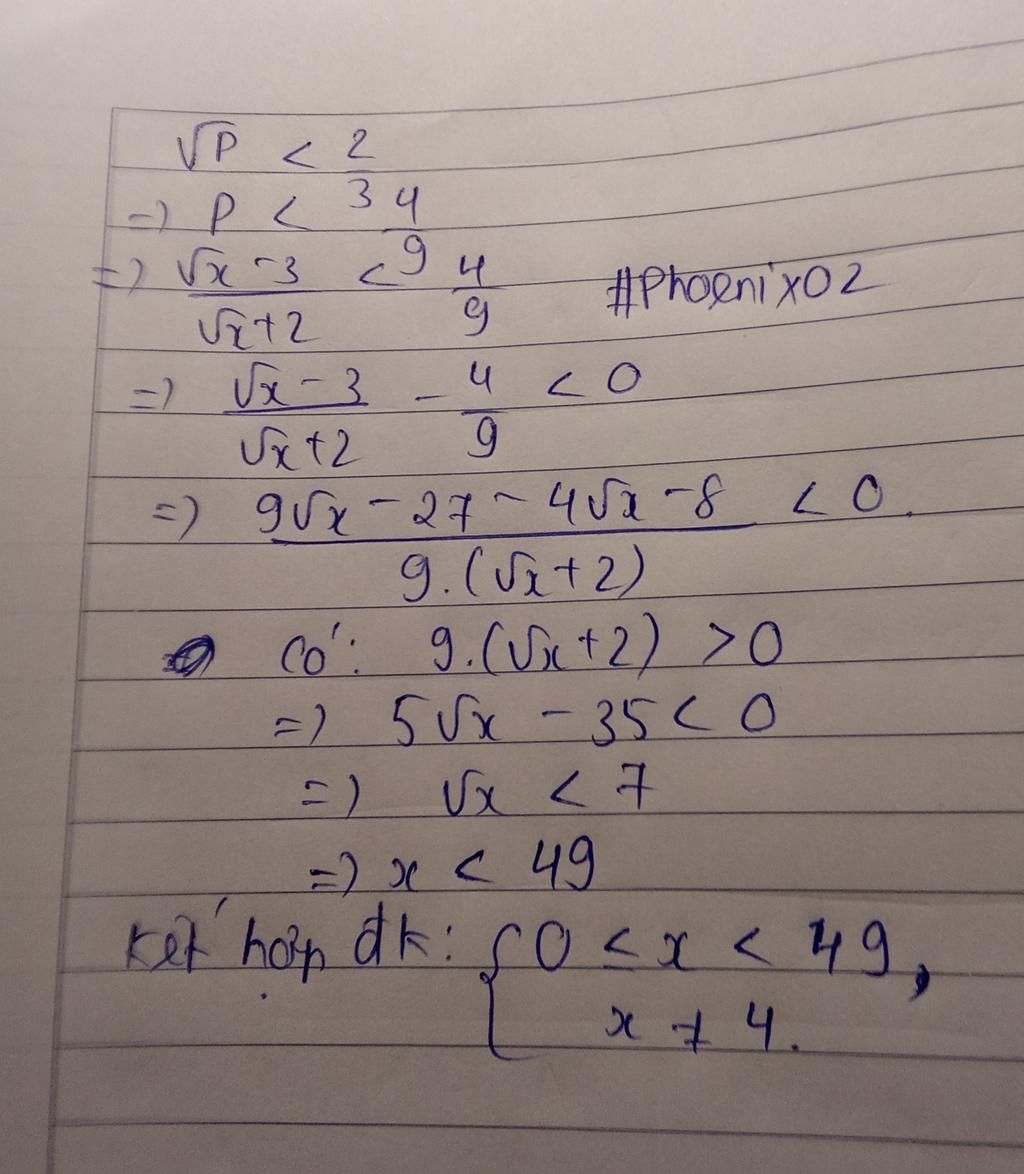 √P < 2/3
=) P < 4/9
=) (√x - 3)/(√x + 2) < 4/9
#Phoenix02
=) (√x - 3)/(√x + 2) - 4/9 < 0
=) (9√x - 27 - 4√x - 8)/(9.(√x + 2)) < 0.
Có: 9.(√x + 2) > 0
=) 5√x - 35 < 0
=) √x < 7
=) x < 49
Kết hợp đk: { 0 ≤ x < 49,
x ≠ 4.